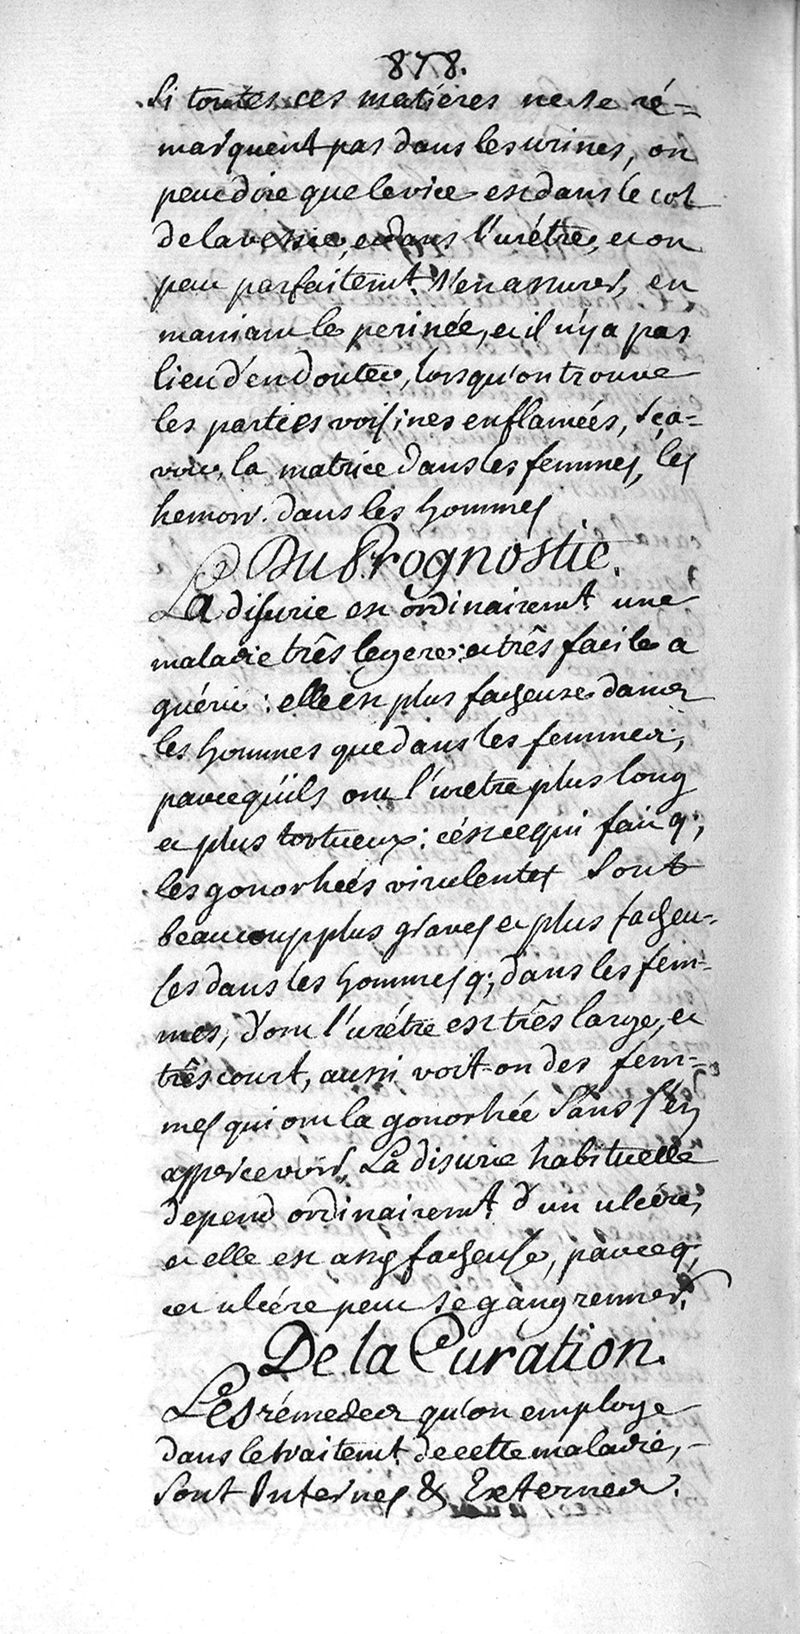 878.
Si toutes ces matières ne se ré-
marquent pas dans les urines, on
peut dire que le vice est dans le col
de la vessie, et dans l'urétre, et on
peut parfaitemt. s'en assurer, en
maniant le perinée, et il n'y a pas
lieu d'en douter, lorsqu'on trouve
les parties voisines enflamées, sça-
voir, la matrice dans les femmes, les
hemorr. dans les hommes
Du Prognostic.
La disurie est ordinairemt. une
maladie três legere, et três facile a
guérir : elle est plus facheuse dans
les hommes que dans les femmes,
parcequ'ils ont l'uretre plus long
et plus tortueux : c'est ce qui fait q;
les gonorhées virulentes sont
beaucoup plus graves et plus facheu-
ses dans les hommes q; dans les fem-
mes, dont l'urétre est três large, et
três court, aussi voit-on des fem-
mes qui ont la gonorhée sans s'en
appercevoir. La disurie habituelle
depend ordinairemt. d'un ulcére,
et elle est assés facheuse, parceq;
cet ulcére peut se gangrenner.
De la Curation.
Les rémedes qu'on employe
dans le traitemt. de cette maladie,
sont Internes & Externes.